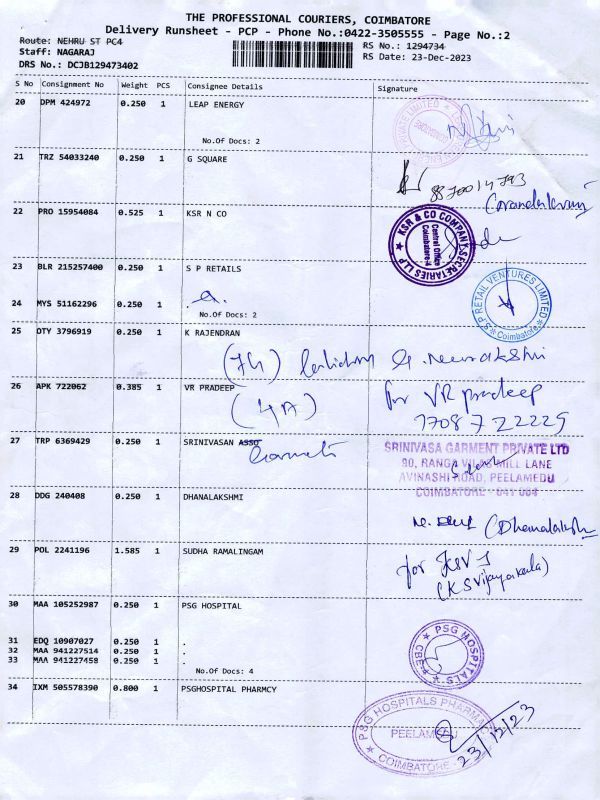 THE PROFESSIONAL COURIERS, COIMBATORE
Delivery Runsheet - PCP - Phone No.:0422-3505555 - Page No.:2
Route: NEHRU ST PC4
RS No.: 1294734
Staff: NAGARAJ
RS Date: 23-Dec-2023
DRS No.: DCJB129473402
S No Consignment No Weight PCS Consignee Details Signature
20 DPM 424972 0.250 1 LEAP ENERGY
No.Of Docs: 2
21 TRZ 54033240 0.250 1 G SQUARE
22 PRO 15954084 0.525 1 KSR N CO
KSR & CO COMPANY SECRETARIES LLP
Central Office
Coimbatore-4
23 BLR 215257400 0.250 1 S P RETAILS
24 MYS 51162296 0.250 1 .
No.Of Docs: 2
S P RETAIL VENTURES LIMITED
Coimbatore
25 OTY 3796919 0.250 1 K RAJENDRAN
26 APK 722062 0.385 1 VR PRADEEP
(4A)
for VR pradeep
27 TRP 6369429 0.250 1 SRINIVASAN ASSO
Garments
SRINIVASA GARMENT PRIVATE LTD
90, RANGA VILAS MILL LANE
AVINASHI ROAD, PEELAMEDU
COIMBATORE - 641 004
28 DDG 240408 0.250 1 DHANALAKSHMI
29 POL 2241196 1.585 1 SUDHA RAMALINGAM
for
(K S Vijayakala)
30 MAA 105252987 0.250 1 PSG HOSPITAL
31 EDQ 10907027 0.250 1 .
32 MAA 941227514 0.250 1 .
33 MAA 941227458 0.250 1 .
No.Of Docs: 4
PSG HOSPITALS
CBE
34 IXM 505578390 0.800 1 PSGHOSPITAL PHARMCY
PSG HOSPITALS PHARMACY
PEELAMEDU
COIMBATORE
23/12/23